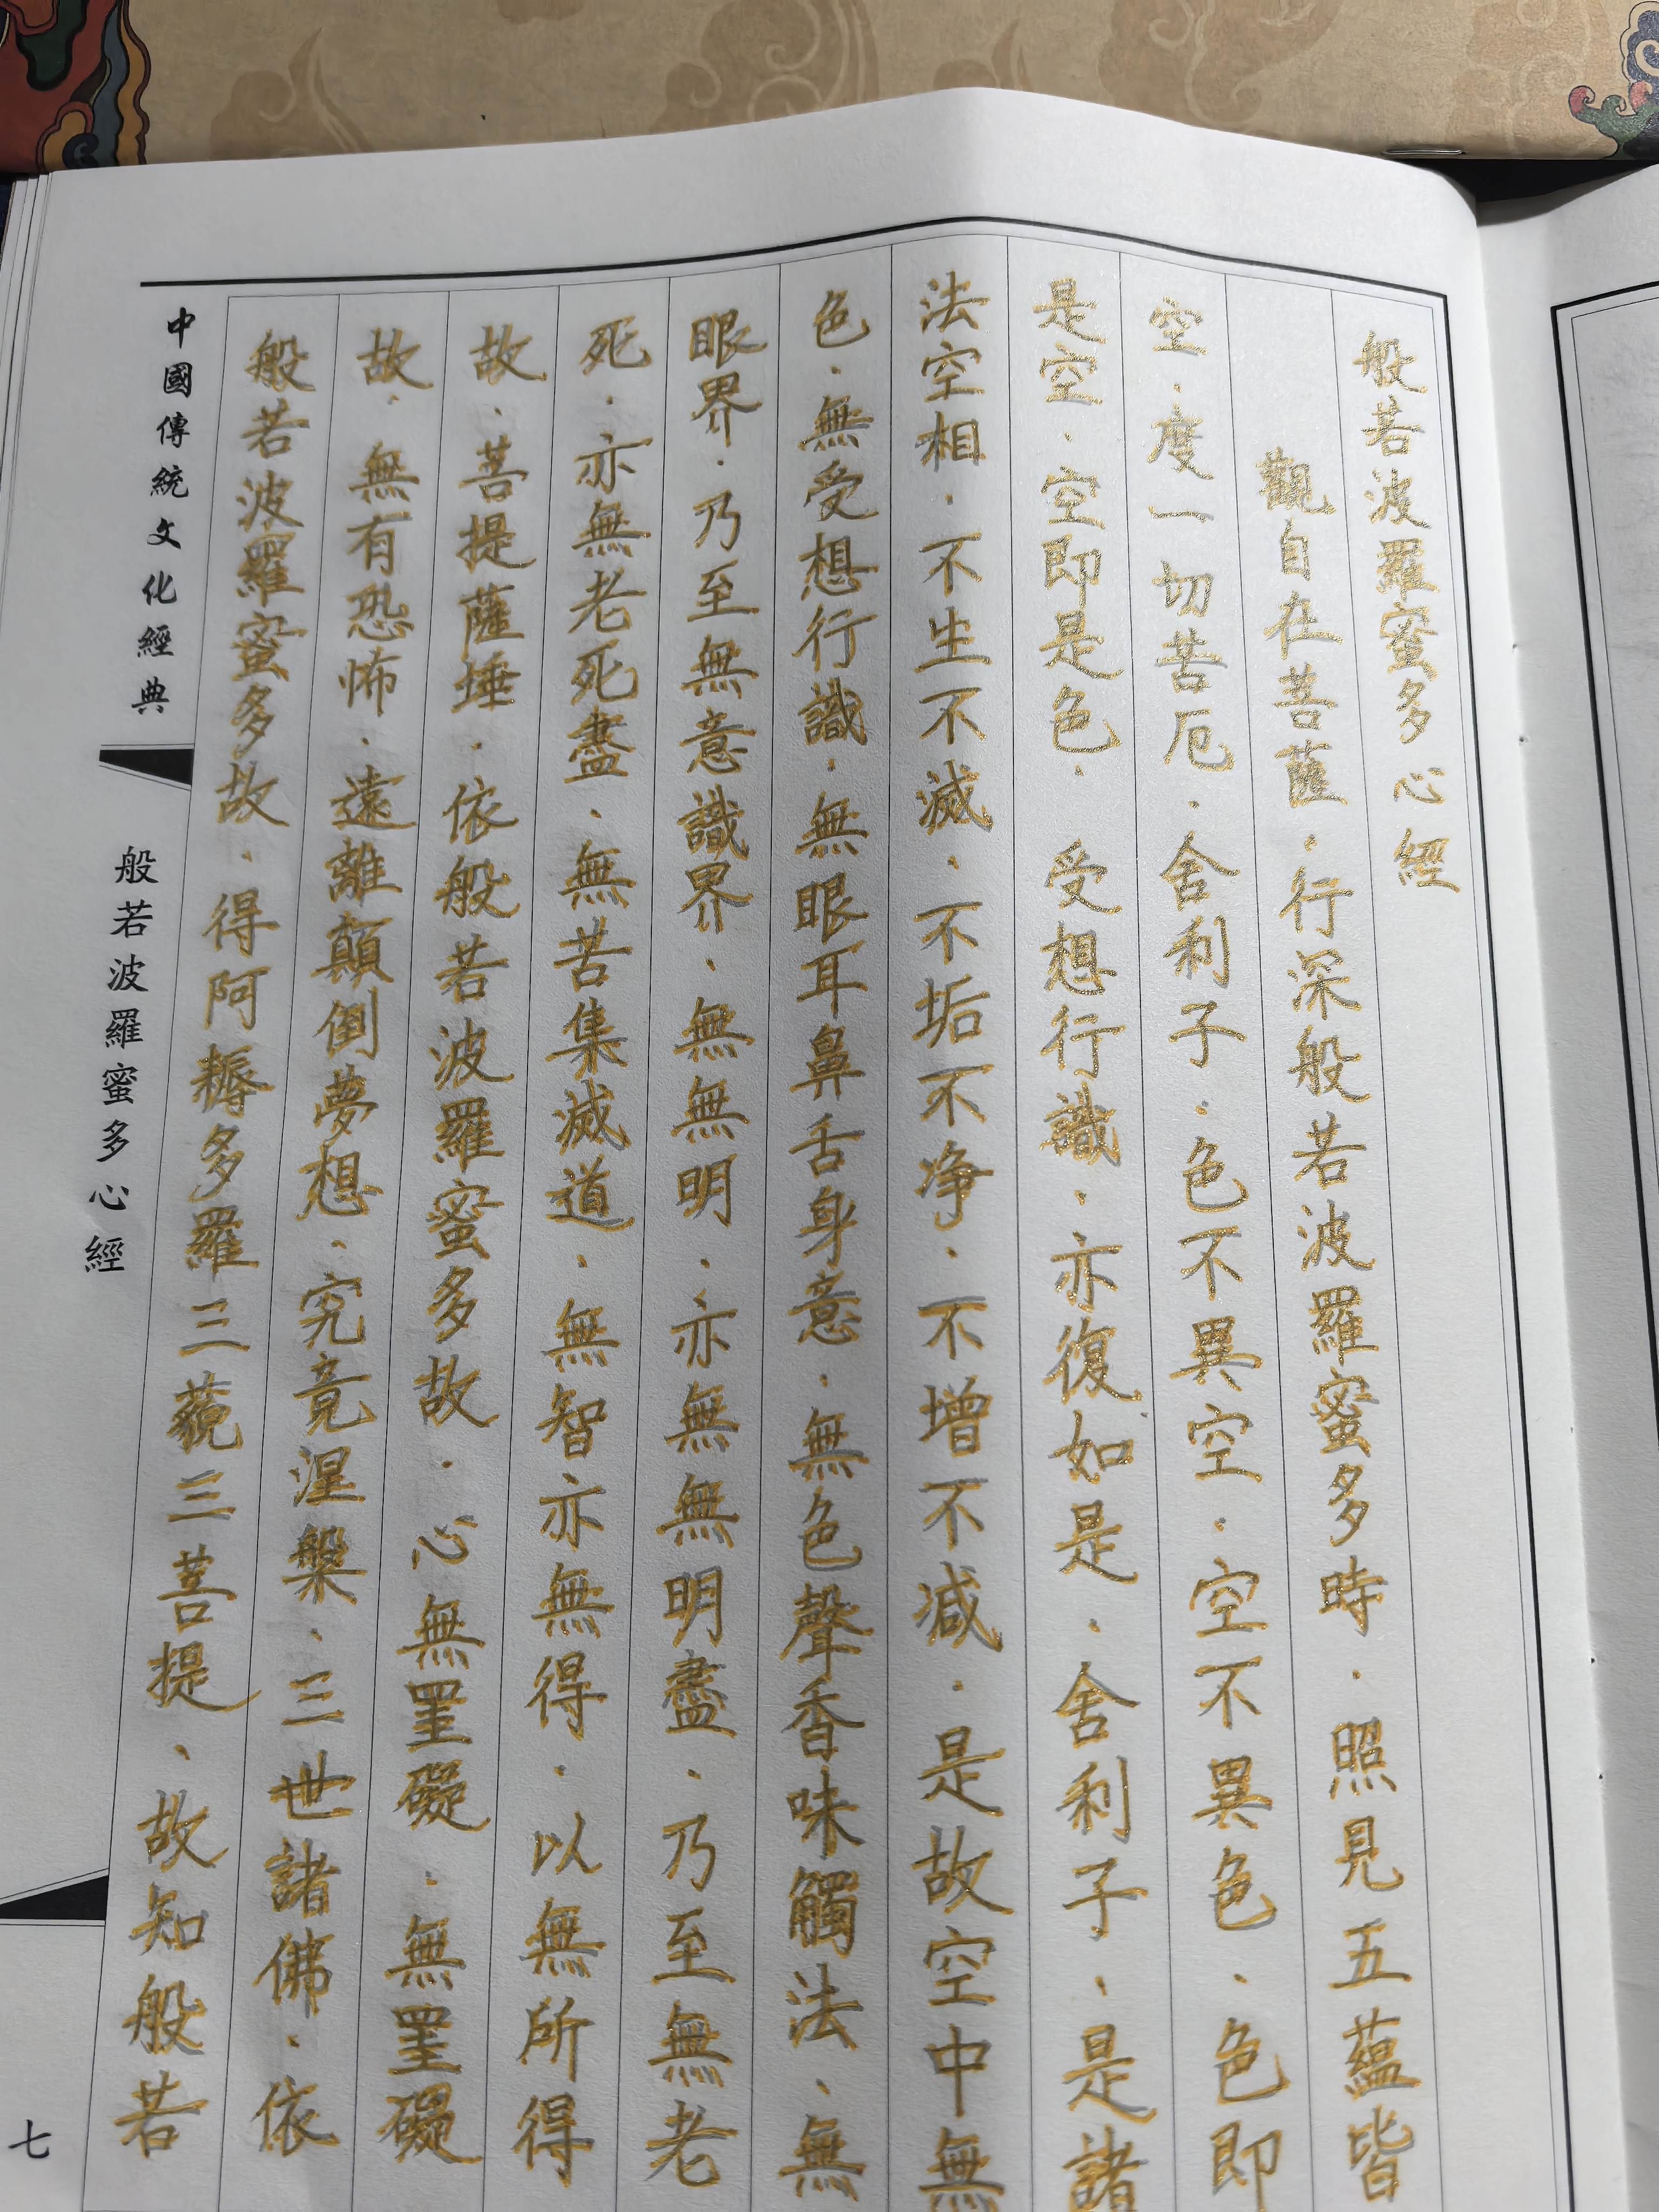 般若波羅蜜多心經
觀自在菩薩．行深般若波羅蜜多時．照見五蘊皆
空．度一切苦厄．舍利子．色不異空．空不異色．色即
是空．空即是色．受想行識．亦復如是．舍利子．是諸
法空相．不生不滅．不垢不净．不增不減．是故空中無
色．無受想行識．無眼耳鼻舌身意．無色聲香味觸法．無
眼界．乃至無意識界．無無明．亦無無明盡．乃至無老
死．亦無老死盡．無苦集滅道．無智亦無得．以無所得
故．菩提薩埵．依般若波羅蜜多故．心無罣礙．無罣礙
故．無有恐怖．遠離顛倒夢想．究竟涅槃．三世諸佛．依
般若波羅蜜多故．得阿耨多羅三藐三菩提．故知般若
中國傳統文化經典
般若波羅蜜多心經
七